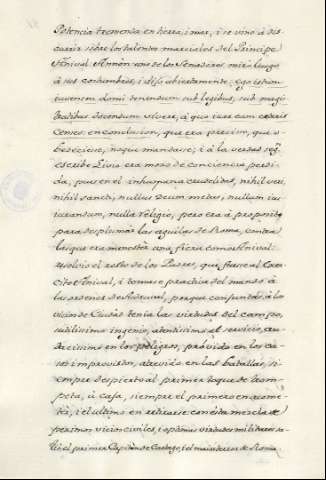 Potencia tremenda en tierra, i mar, i se vino à dis-
currir sobre los talentos marciales del Principe
Anival. Annòn uno de los Senadores mirò luego
à sus costumbres, i dijo abiertamente: Ego istum
iuvenem domi tenendum sub legibus, sub magis-
tratibus docendum vivere, à quo iure cum ceteris
Censeo: en conclusion, que era preciso, que o-
bedeciese, no que mandase; i à la verdad seg.
escribe Livio era moso de conciencia perdi-
da, pues en èl inhumana crudelitas, nihil veri,
nihil sancti, nullus deum metus, nullum ius
iurandum, nulla religio, pero era à proposito
para desplumar las aguilas de Roma, contra
las que era menester una fiera como Anival:
resolviò el resto de los Padres, que fuese al Exer-
cito Anival, i tomase practica del mando à
las ordenes de Asdrubal, porque confundidos à los
vicios de Ciudad tenia las virtudes del campo,
sutilissimo ingenio, atentissimo al servicio, au-
dacissimo en los peligros, pròvido en los ca-
sos improvistos, atrevido en las batallas, si-
empre despierto al primer toque de trom-
peta, ù caja, siempre el primero en acome-
ter, i el ultimo en retirarse: con esta mezcla de
pesimos vicios civiles, i optimas virtudes militares sa-
liò el primer Capitan de Cartago, i el mayor terror de Roma.